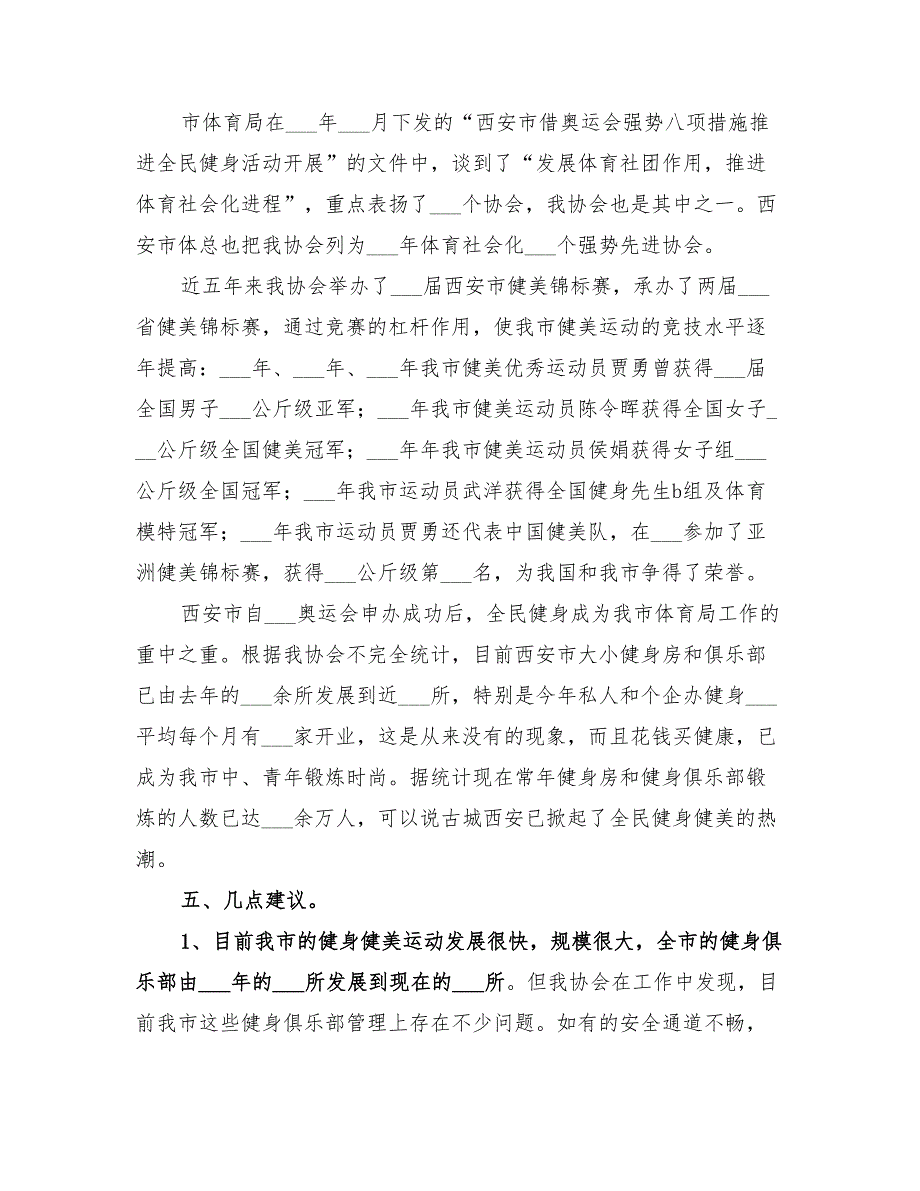 市体育局在___年___月下发的“西安市借奥运会强势八项措施推
进全民健身活动开展”的文件中，谈到了“发展体育社团作用，推进
体育社会化进程”，重点表扬了___个协会，我协会也是其中之一。西
安市体总也把我协会列为___年体育社会化___个强势先进协会。
近五年来我协会举办了___届西安市健美锦标赛，承办了两届___
省健美锦标赛，通过竞赛的杠杆作用，使我市健美运动的竞技水平逐
年提高：___年、___年、___年我市健美优秀运动员贾勇曾获得___届
全国男子___公斤级亚军；___年我市健美运动员陈令晖获得全国女子_
__公斤级全国健美冠军；___年年我市健美运动员侯娟获得女子组___
公斤级全国冠军；___年我市运动员武洋获得全国健身先生b组及体育
模特冠军；___年我市运动员贾勇还代表中国健美队，在___参加了亚
洲健美锦标赛，获得___公斤级第___名，为我国和我市争得了荣誉。
西安市自___奥运会申办成功后，全民健身成为我市体育局工作的
重中之重。根据我协会不完全统计，目前西安市大小健身房和俱乐部
已由去年的___余所发展到近___所，特别是今年私人和个企办健身___
平均每个月有___家开业，这是从来没有的现象，而且花钱买健康，已
成为我市中、青年锻炼时尚。据统计现在常年健身房和健身俱乐部锻
炼的人数已达___余万人，可以说古城西安已掀起了全民健身健美的热
潮。
五、几点建议。
1、目前我市的健身健美运动发展很快，规模很大，全市的健身俱
乐部由___年的___所发展到现在的___所。但我协会在工作中发现，目
前我市这些健身俱乐部管理上存在不少问题。如有的安全通道不畅，